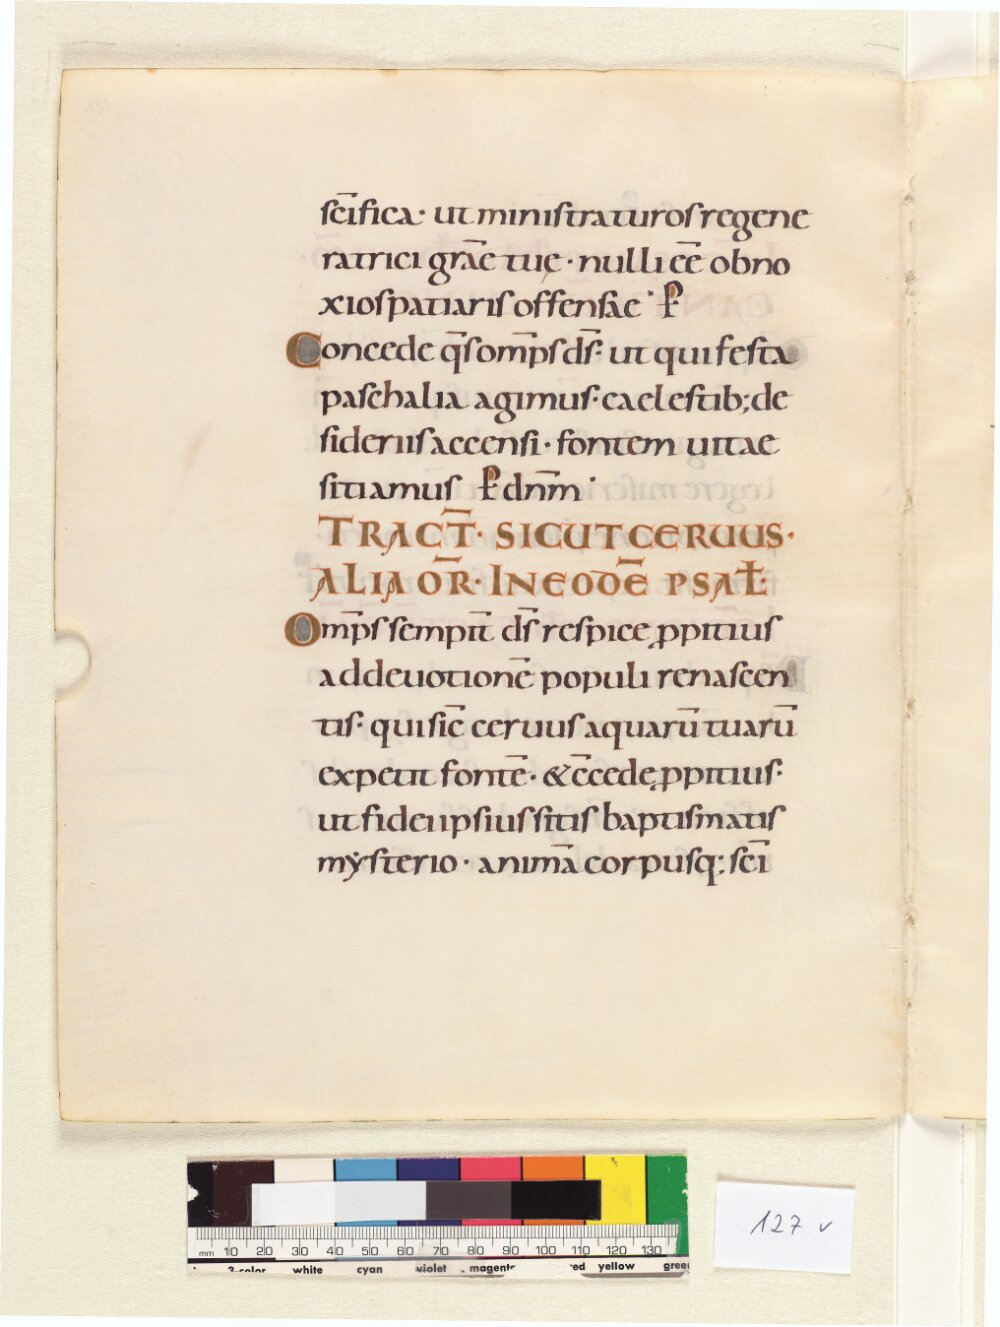 sc̄ifica· ut ministraturos regene
ratrici grāe tuę · nulli ēē obno
xios patiaris offensae · P̄
Concede q̄s om̄ps d̄s· ut qui festa
paschalia agimus· caelestib; de
sideriis accensi · fontem uitae
sitiamus P̄ dn̄m ·
TRACT̄· SICUT CERUUS·
ALIA OR̄· IN EODĒ PSAŁ·
Om̄ps sempit̄ d̄s respice ꝓpitius
ad deuotionē populi renascen
tis· qui sic̄ ceruus aquarū tuarū
expetit fontē · & c̄cede ꝓpitius·
ut fidei ipsius sitis baptismatis
mẏsterio · animā corpusq; sc̄i
127 v
mm 10 20 30 40 50 60 70 80 90 100 110 120 130
3-color white cyan violet magent red yellow green